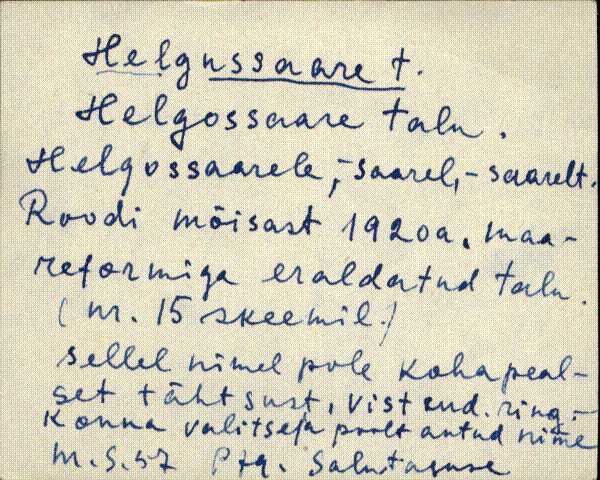 Helgussaare t.
Helgossaare talu.
Helgossaarele, -saarel, -saarelt.
Roodi mõisast 1920a. maa-
reformiga eraldatud talu.
(nr. 15 skeemil.)
sellel nimel pole kohapeal-
set tähtsust, vist end. ring-
konna valitseja poolt antud nime
m. S. 57